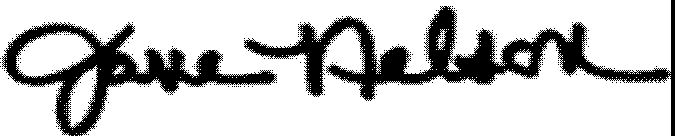 Jane Nelson